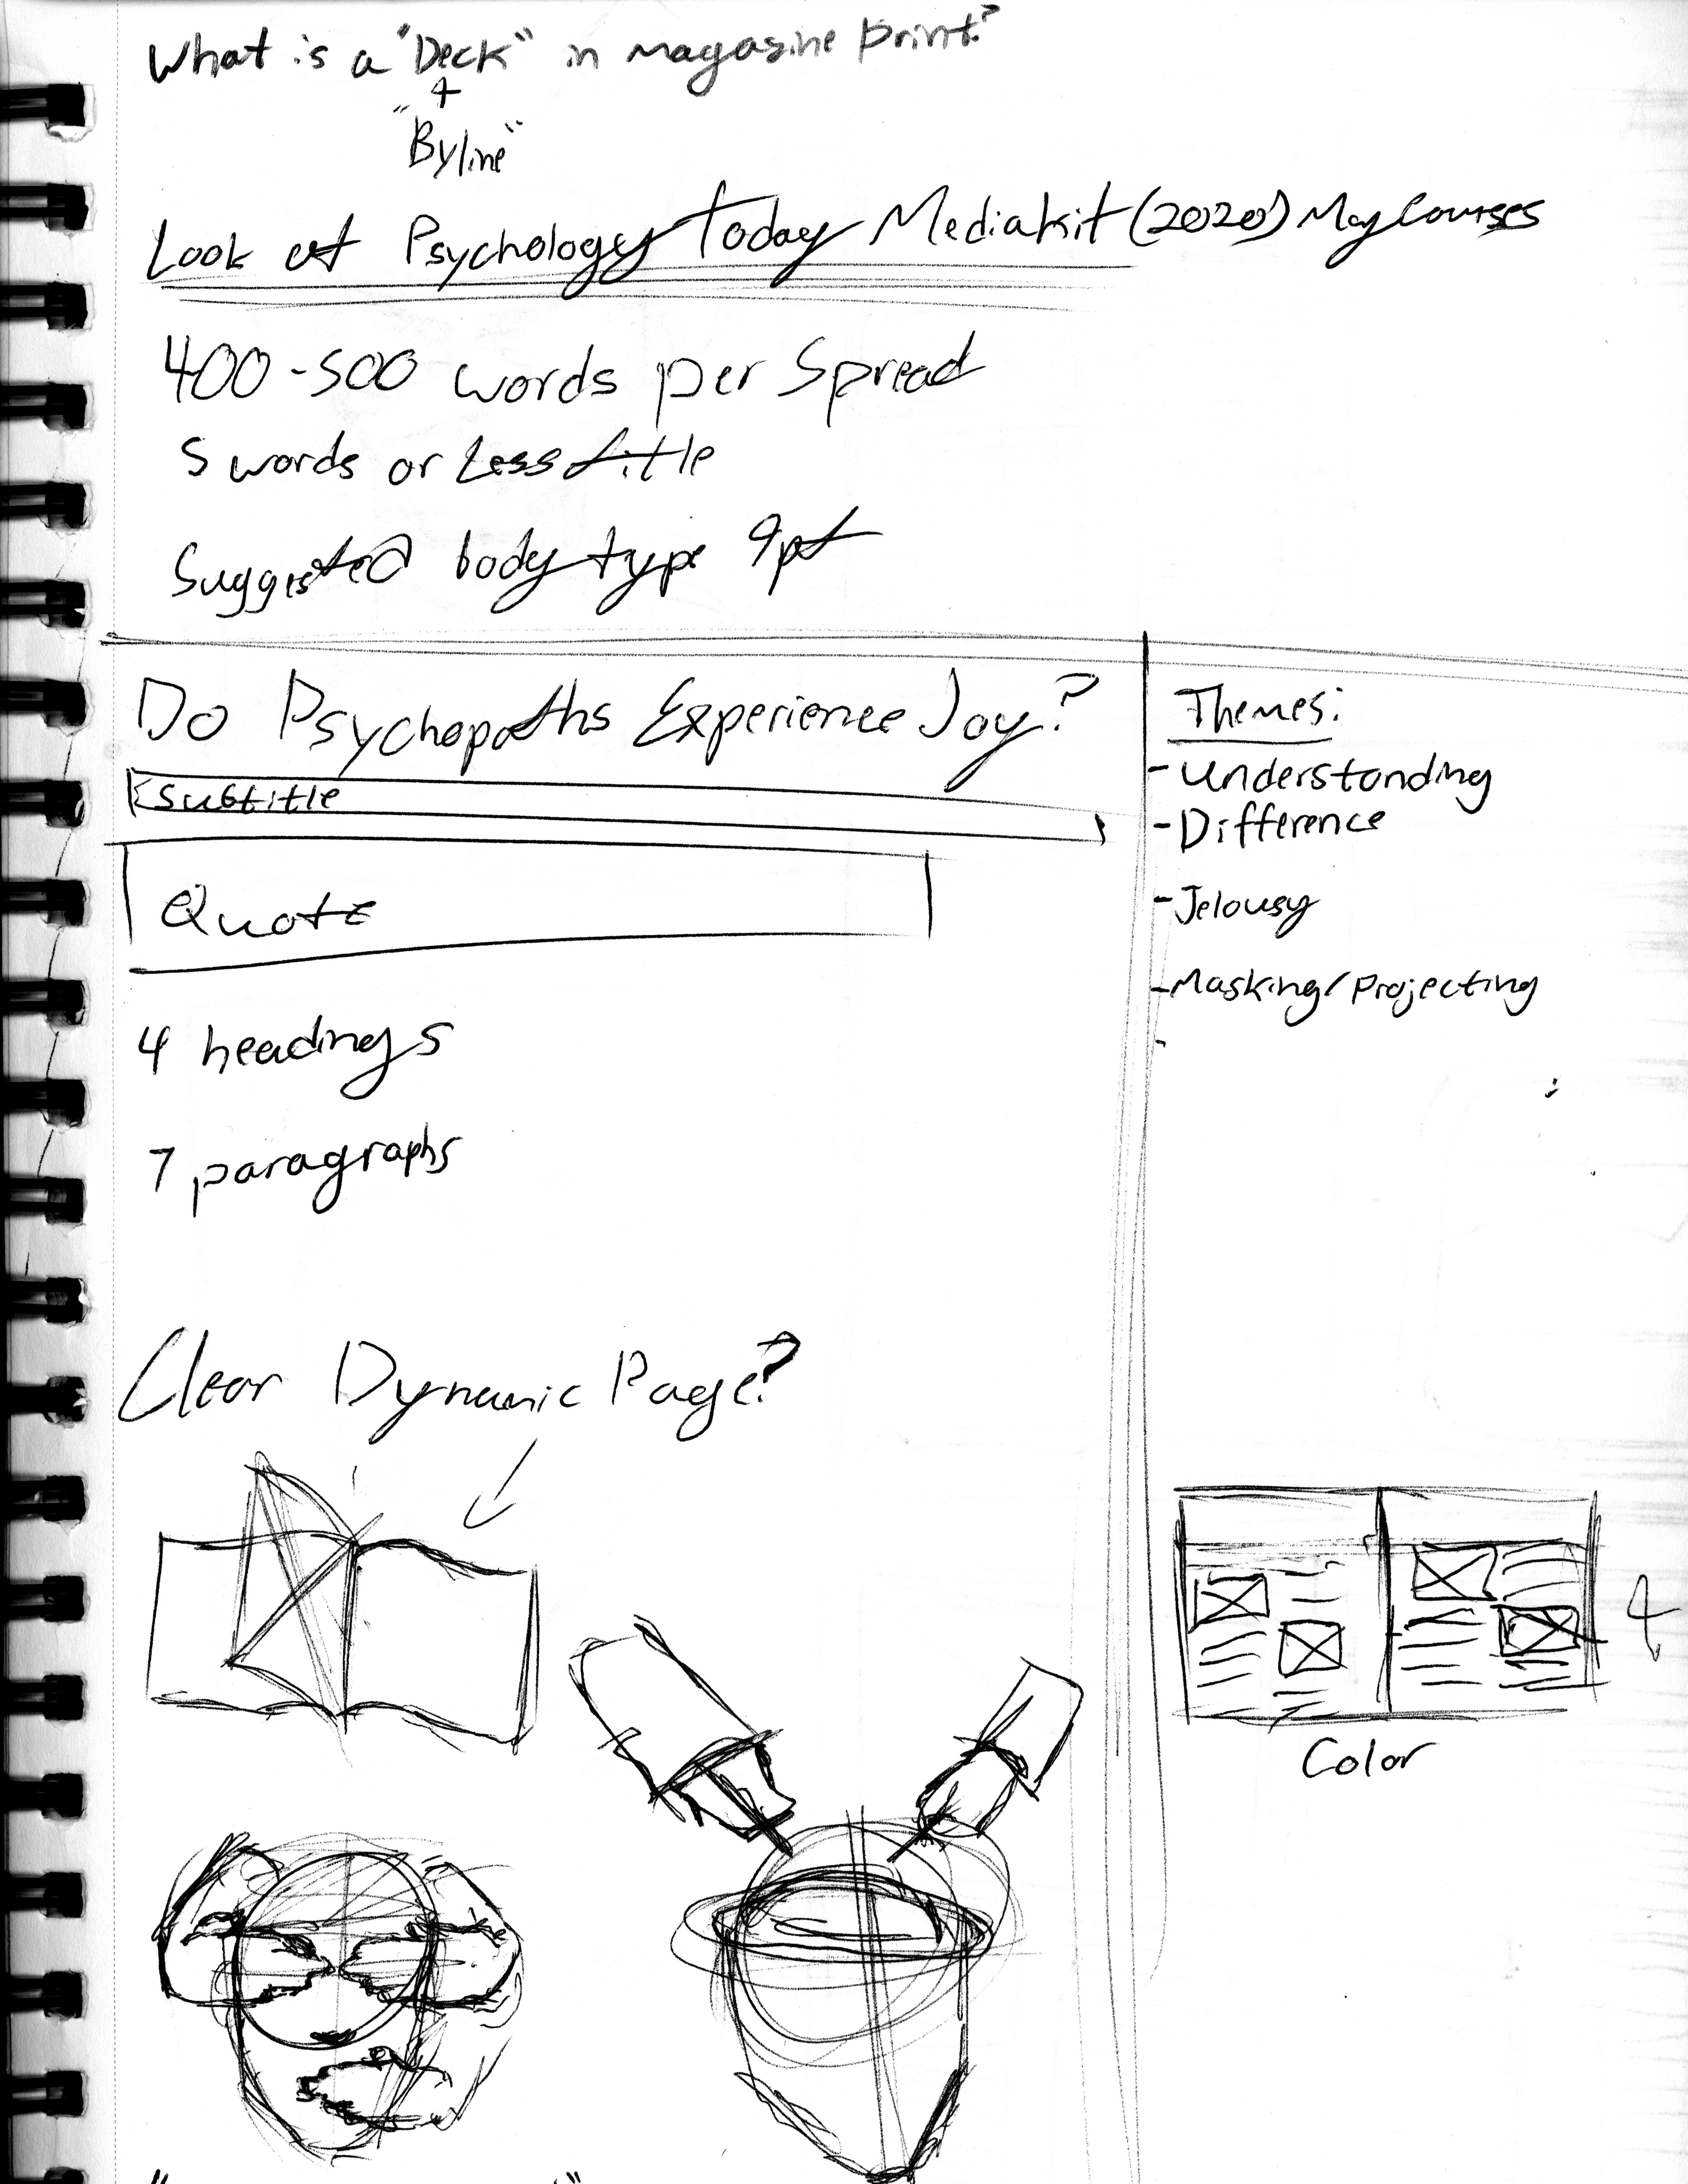 What is a "Deck" in magasine print?
+
"Byline"
Look at Psychology Today Mediakit (2020) MyCourses
400-500 words per Spread
5 words or Less title
Suggested body type 9pt
Do Psychopaths Experience Joy?
Subtitle
Quote
4 headings
7 paragraphs
Themes:
- Understanding
- Difference
- Jelousy
- Masking/Projecting
-
Clear Dynamic Page?
Color